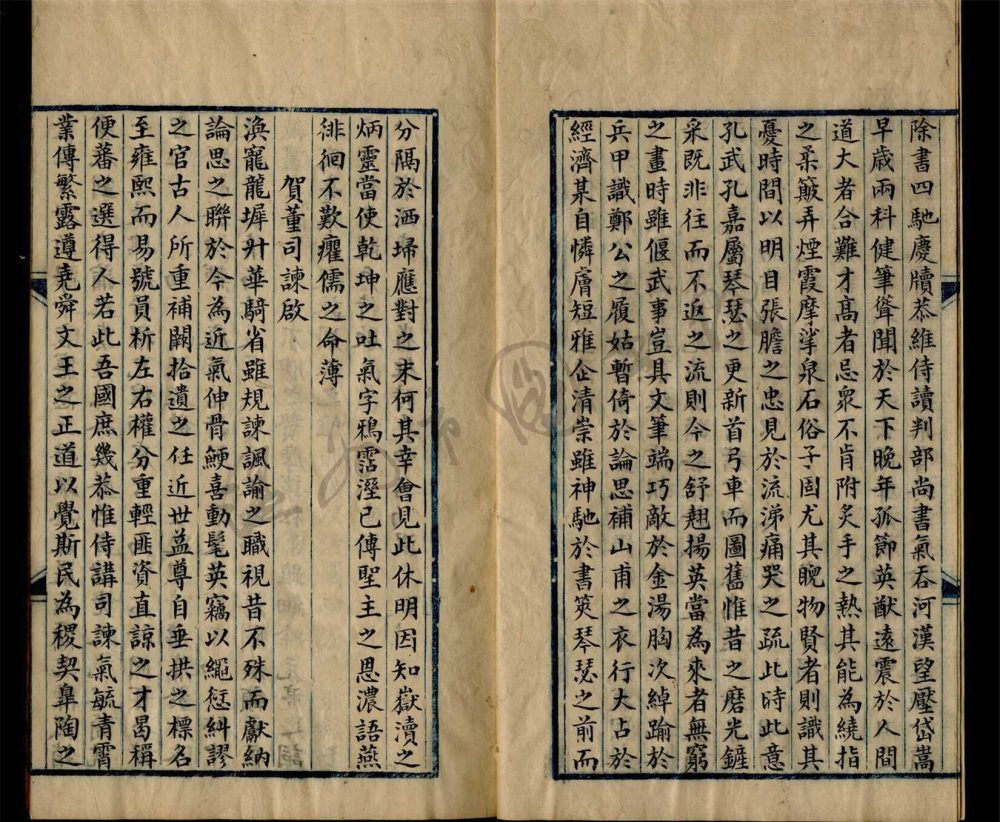 除書四馳慶牘恭維侍讀判部尚書氣吞河漢望壓岱嵩
早歲兩科健筆聳聞於天下晚年孤節英猷遠震於人間
道大者合難才髙者忌眾不肯附炙手之熱其能為繞指
之柔簸弄煙霞摩挲泉石俗子固尤其睨物賢者則識其
憂時間以明目張膽之忠見於流涕痛哭之疏此時此意
孔武孔嘉屬琴瑟之更新首弓車而圖舊惟昔之磨光鏟
采既非往而不返之流則今之舒翹揚英當為來者無窮
之畫時雖偃武事豈具文筆端巧敵於金湯胸次綽踰於
兵甲識鄭公之履姑暫倚於論思補山甫之衣行大占於
經濟某自憐膚短雅企清崇雖神馳於書筴琴瑟之前而
分隔於洒埽應對之末何其幸會見此休明因知嶽瀆之
炳靈當使乾坤之吐氣字鴉霑溼已傳聖主之恩濃語燕
徘徊不歎癯儒之命薄
賀董司諫啟
渙寵龍墀升華騎省雖規諫諷諭之職視昔不殊而獻納
論思之聯於今為近氣伸骨鯁喜動髦英竊以繩愆糾謬
之官古人所重補闕拾遺之任近世益尊自垂拱之標名
至雍熙而易號員析左右權分重輕匪資直諒之才曷稱
便蕃之選得人若此吾國庶幾恭惟侍講司諫氣毓青霄
業傳繁露遵堯舜文王之正道以覺斯民為稷契皐陶之